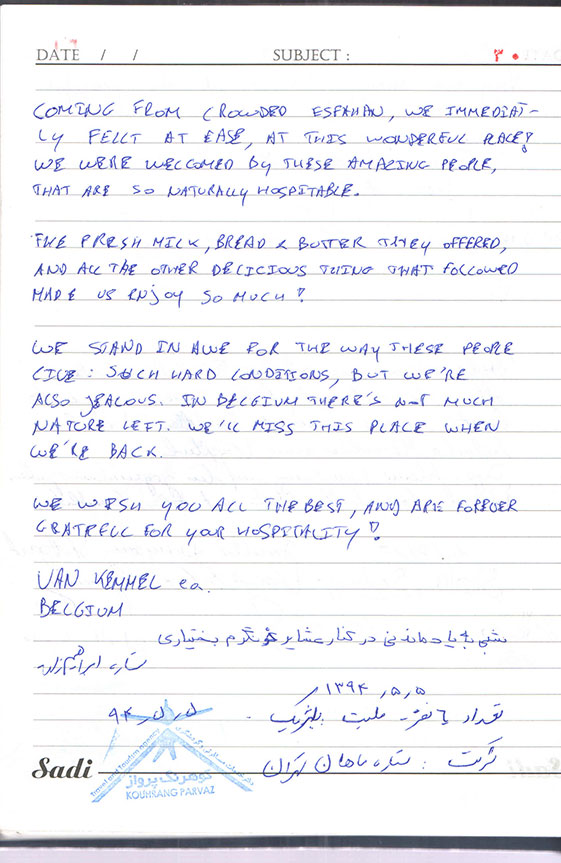 DATE / / SUBJECT : ۳۰
COMING FROM CROWDED ESFAHAN, WE IMMEDIAT-
LY FELLT AT EASE, AT THIS WONDERFUL PLACE!
WE WERE WELCOMED BY THESE AMAZING PEOPLE,
THAT ARE SO NATURALLY HOSPITABLE.
THE FRESH MILK, BREAD & BUTTER THEY OFFERED,
AND ALL THE OTHER DELICIOUS THING THAT FOLLOWED
MADE US ENJOY SO MUCH!
WE STAND IN AWE FOR THE WAY THESE PEOPLE
LIVE : SUCH HARD CONDITIONS, BUT WE'RE
ALSO JEALOUS. IN BELGIUM THERE'S NOT MUCH
NATURE LEFT. WE'LL MISS THIS PLACE WHEN
WE'RE BACK.
WE WISH YOU ALL THE BEST, AND ARE FOREVER
GRATEFULL FOR YOUR HOSPITALITY!
VAN KEMMEL ea.
BELGIUM
شبی به یاد ماندنی در کنار عشایر خونگرم بختیاری
ستاره ابراهیم‌زاده
۱۳۹۴٫۵٫۵
تعداد ۶ نفر - ملیت بلژیک - ۹۴٫۵٫۵
ستاره ماهان تهران
Travel and Tourism agency
کوهرنگ پرواز
KOUHRANG PARVAZ
Sadi
Sadi